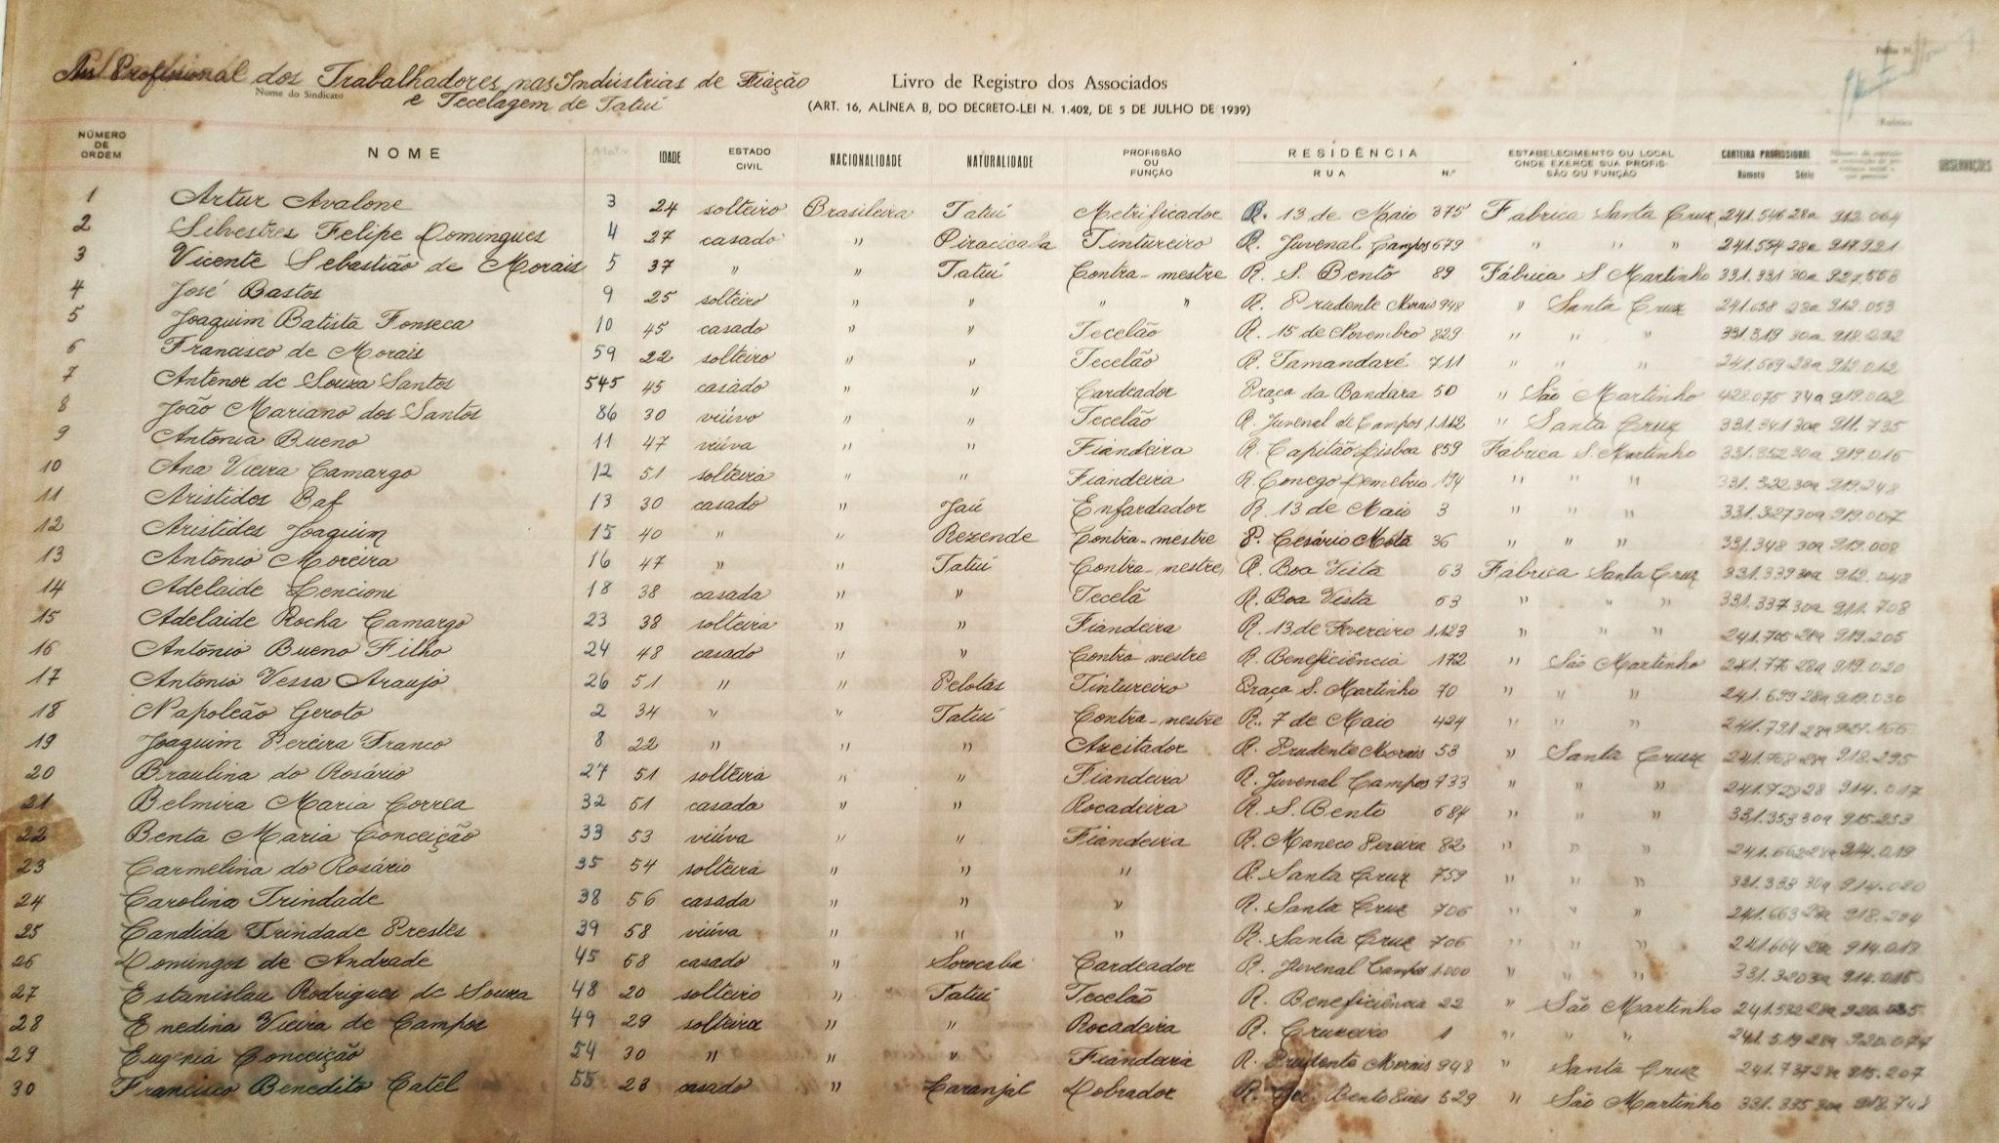 Profissional dos Trabalhadores nas Indústrias de Fiação
Nome do Sindicato
e Tecelagem de Tatuí
Livro de Registro dos Associados
(ART. 16, ALÍNEA B, DO DECRETO-LEI N. 1.402, DE 5 DE JULHO DE 1939)
NÚMERO DE ORDEM NOME IDADE ESTADO CIVIL NACIONALIDADE NATURALIDADE PROFISSÃO OU FUNÇÃO RESIDÊNCIA RUA N.º ESTABELECIMENTO OU LOCAL ONDE EXERCE SUA PROFISSÃO OU FUNÇÃO CARTEIRA PROFISSIONAL Número Série OBSERVAÇÕES
1 Artur Avalone 3 24 solteiro Brasileira Tatuí Metrificador R. 13 de Maio 375 Fabrica Santa Cruz 241.546 28a 912.064
2 Silvestres Felipe Domingues 4 27 casado " Piracicaba Tintureiro R. Juvenal Campos 679 " " " 241.554 28a 917.921
3 Vicente Sebastião de Morais 5 37 " " Tatuí Contra-mestre R. S. Bento 89 Fábrica S Martinho 331.931 30a 927.558
4 José Bastos 9 25 solteiro " " " " R. Prudente Morais 948 " Santa Cruz 241.638 28a 912.053
5 Joaquim Batista Fonseca 10 45 casado " " Tecelão R. 15 de Novembro 829 " " " 331.319 30a 918.292
6 Francisco de Morais 59 22 solteiro " " Tecelão R. Tamandaré 711 " " " 241.569 28a 912.012
7 Antenor de Souza Santos 545 45 casado " " Cardeador Praça da Bandeira 50 " São Martinho 428.075 34a 919.002
8 João Mariano dos Santos 86 30 viúvo " " Tecelão R. Juvenal de Campos 1.112 " Santa Cruz 331.341 30a 911.735
9 Antonia Bueno 11 47 viúva " " Fiandeira R. Capitão Lisboa 859 Fabrica S. Martinho 331.352 30a 919.016
10 Ana Vieira Camargo 12 51 solteira " " Fiandeira R. Conego Demetrio 194 " " " 331.322 30a 919.248
11 Aristides Baf 13 30 casado " Jaú Enfardador R. 13 de Maio 3 " " " 331.327 30a 919.007
12 Aristides Joaquim 15 40 " " Rezende Contra-mestre P. Cesário Mota 36 " " " 331.348 30a 919.008
13 Antônio Moreira 16 47 " " Tatuí Contra-mestre R. Boa Vista 63 Fabrica Santa Cruz 331.339 30a 912.048
14 Adelaide Cencioni 18 38 casada " " Tecelã R. Boa Vista 63 " " " 331.337 30a 911.708
15 Adelaide Rocha Camargo 23 38 solteira " " Fiandeira R. 13 de Fevereiro 1.123 " " " 241.706 28a 919.205
16 Antônio Bueno Filho 24 48 casado " " Contra mestre R. Beneficiência 172 " São Martinho 241.776 28a 919.020
17 Antonio Vessa Araujo 26 51 " " Pelotas Tintureiro Praça S. Martinho 70 " " " 241.699 28a 919.030
18 Napoleão Geroto 2 34 " " Tatuí Contra-mestre R. 7 de Maio 424 " " " 241.791 28a 927.166
19 Joaquim Pereira Franco 8 22 " " " Azeitador R. Prudente Morais 53 " Santa Cruz 241.768 28a 918.295
20 Braulina do Rosário 27 51 solteira " " Fiandeira R. Juvenal Campos 733 " " " 241.729 28 914.017
21 Belmira Maria Correa 32 51 casada " " Rocadeira R. S. Bento 684 " " " 331.353 30a 915.253
22 Benta Maria Conceição 33 53 viúva " " Fiandeira R. Maneco Pereira 82 " " " 241.662 28a 914.019
23 Carmelina do Rosário 35 54 solteira " " " R. Santa Cruz 759 " " " 331.333 30a 914.020
24 Carolina Trindade 38 56 casada " " " R. Santa Cruz 706 " " " 241.663 28a 918.294
25 Candida Trindade Prestes 39 58 viúva " " " R. Santa Cruz 706 " " " 241.664 28a 914.018
26 Domingos de Andrade 45 68 casado " Sorocaba Cardeador R. Juvenal Campos 1.000 " " " 331.320 30a 914.016
27 Estanislau Rodrigues de Souza 48 20 solteiro " Tatuí Tecelão R. Beneficiência 22 " São Martinho 241.532 28a
28 Enedina Vieira de Campos 49 29 solteira " " Rocadeira R. Cruzeiro 1 " " " 241.519 28a 920.074
29 Eugenia Conceição 54 30 " " " Fiandeira R. Prudente Morais 948 " Santa Cruz 241.737 28a 915.207
30 Francisco Benedito Catel 55 28 casado " Laranjal Dobrador R. Bento Pires 529 " São Martinho 331.335 30a